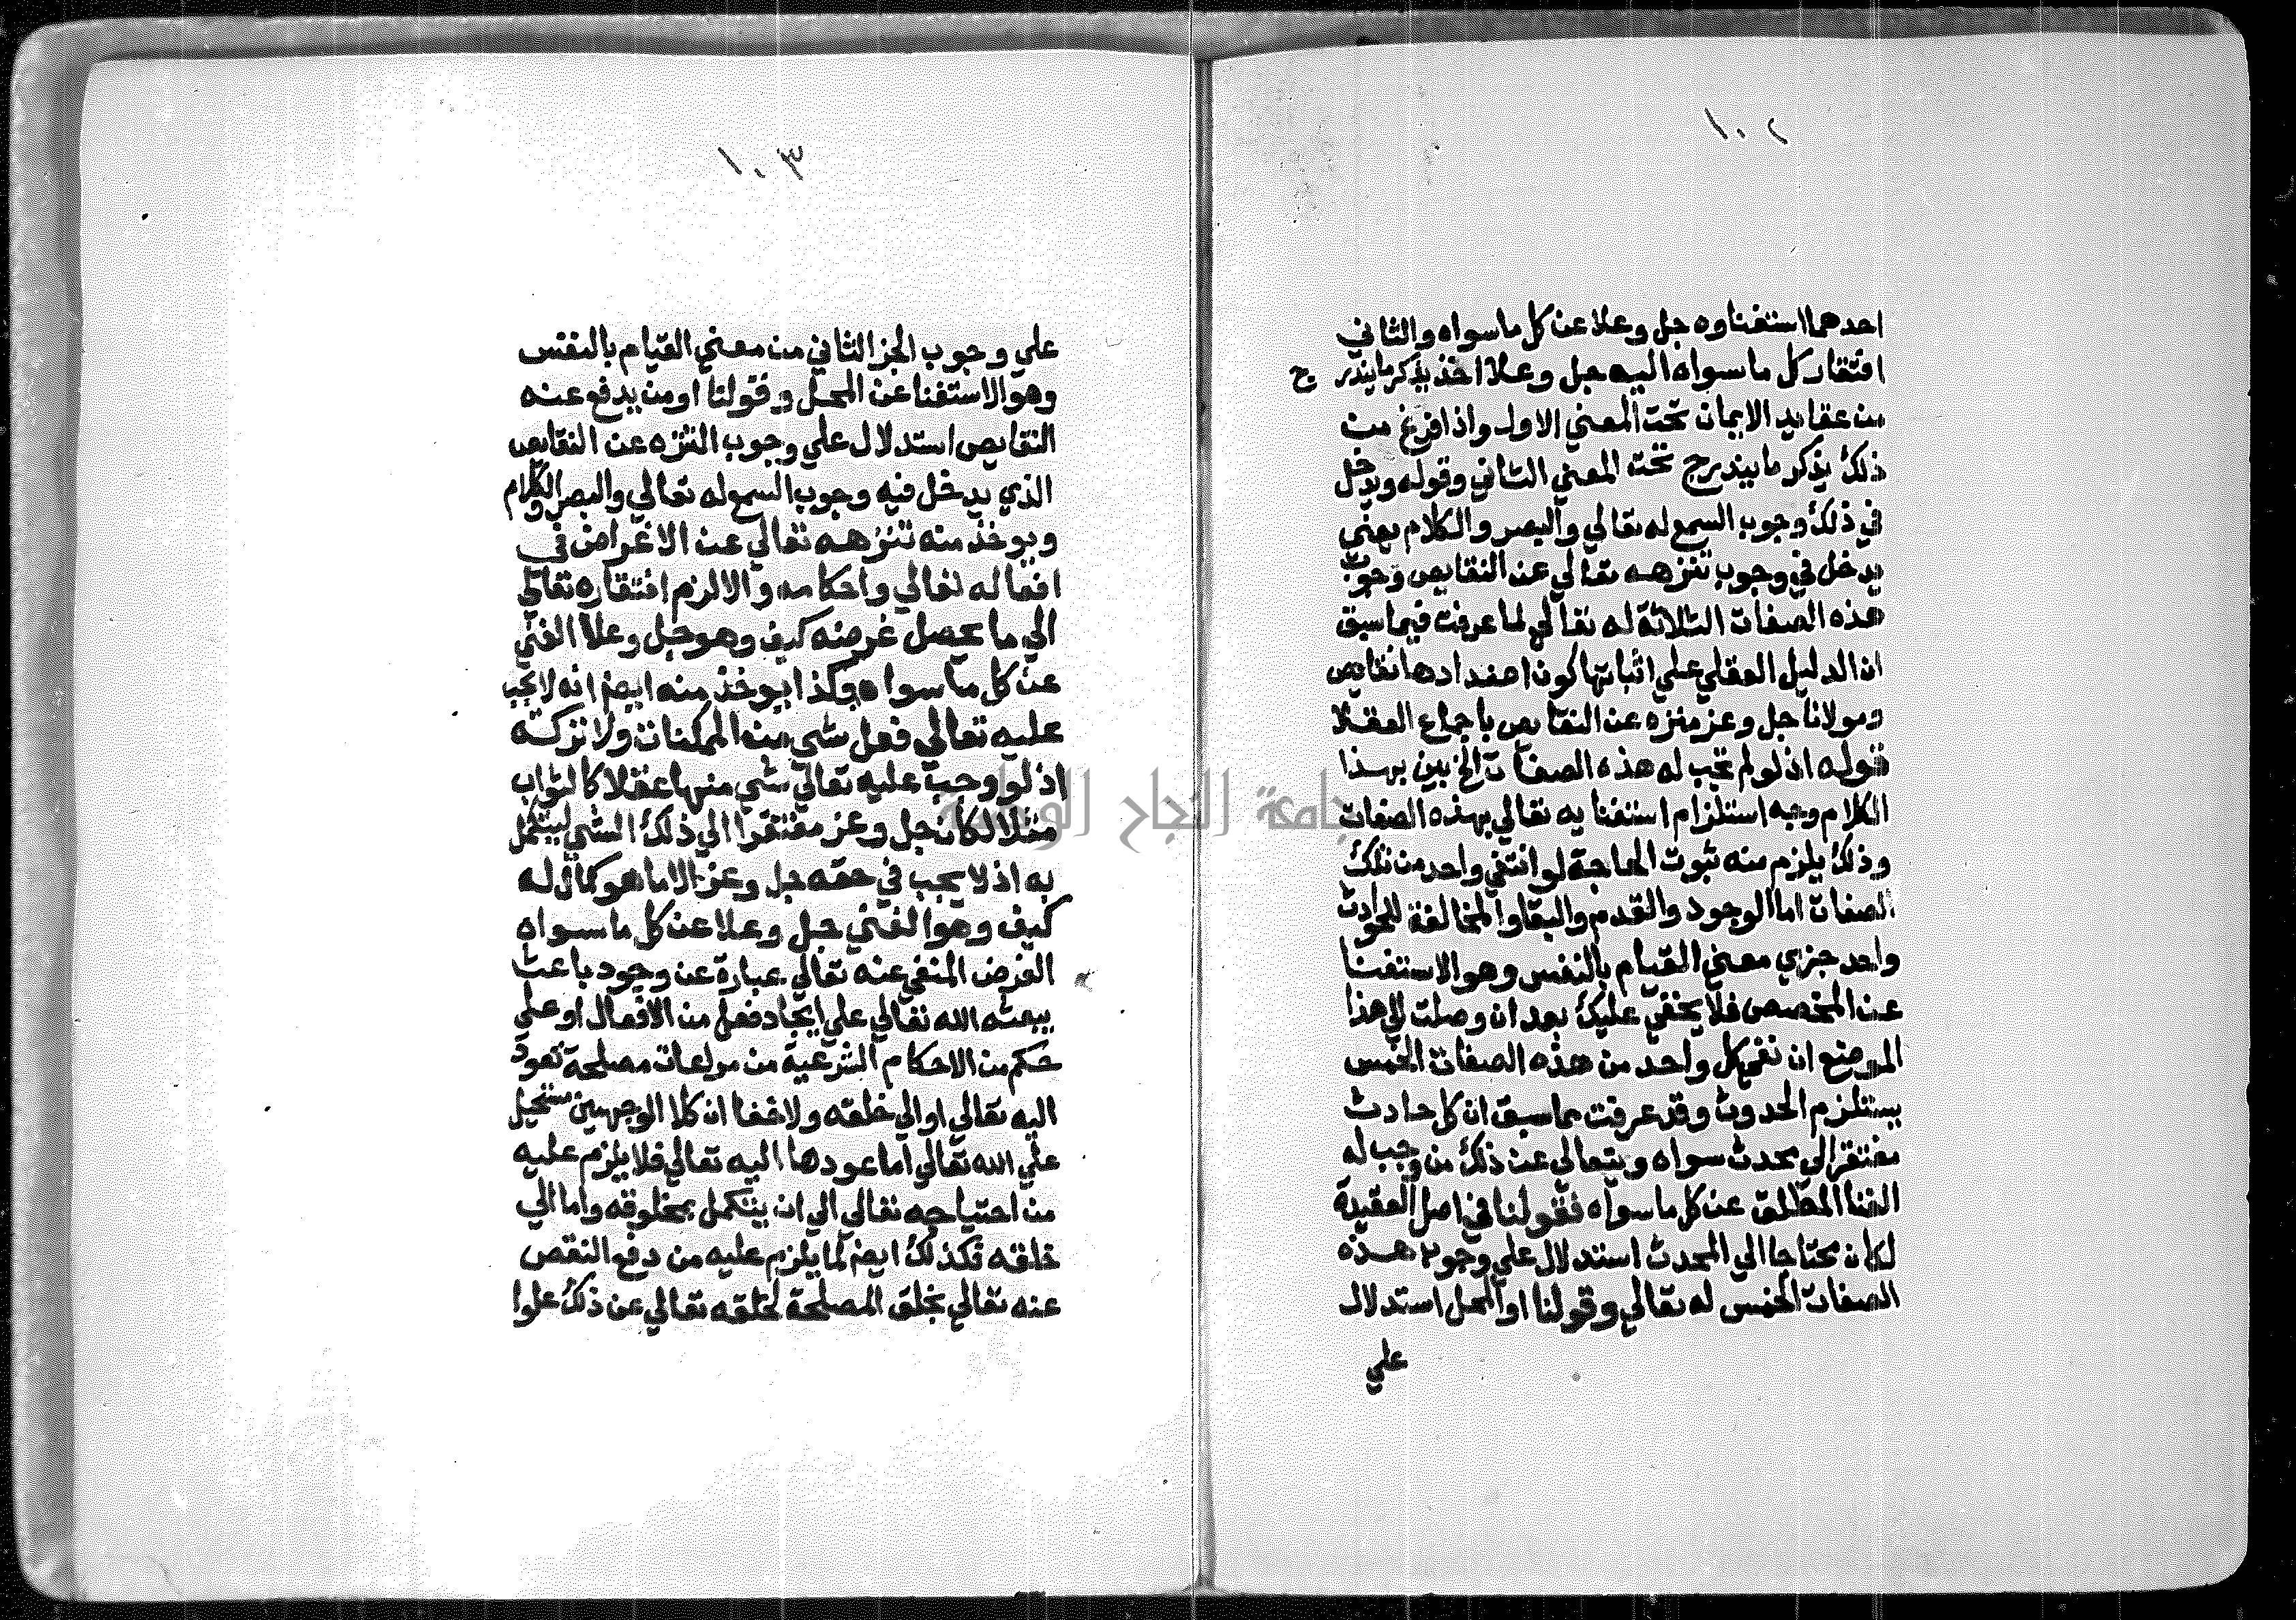 ١٠٢
احدهما استغناوه جل وعلا عن كل ما سواه والثاني
افتقار كل ما سواه اليه جل وعلا اخذ يذكر ما يندرج
من عقايد الايمان تحت المعني الاول واذا فرغ من
ذلك يذكر ما يندرج تحت المعني الثاني وقوله ويدخل
في ذلك وجوب السمع له تعالي والبصر والكلام يعني
يدخل في وجوب تنزهه تعالي عن النقايص وجوب
هذه الصفات الثلاثة له تعالي لما عرفت فيما سبق
ان الدليل العقلي علي اثباتها كون اضدادها نقايص
ومولانا جل وعز منزه عن النقايص باجماع العقلا
قوله اذ لو لم تجب له هذه الصفات الخ بين بهذا
الكلام وجه استلزام استغنايه تعالي بهذه الصفات
وذلك يلزم منه ثبوت الحاجة لو انتفي واحد من تلك
الصفات اما الوجود والقدم والبقا والمخالفة للحوادث
واحد جزي معني القيام بالنفس وهو الاستغنا
عن المخصص فلا يخفي عليك بعد ان وصلت الي هذا
الموضع ان نفي كل واحد من هذه الصفات الخمس
يستلزم الحدوث وقد عرفت بما سبق ان كل حادث
مفتقر الي محدث سواه ويتعالي عن ذلك من وجب له
الغنا المطلق عن كل ما سواه فقولنا في اصل العقيدة
لكان محتاجا الي المحدث استدلال علي وجوب هذه
الصفات الخمس له تعالي وقولنا او المحل استدلال
علي
١٠٣
علي وجوب الجز الثاني من معني القيام بالنفس
وهو الاستغنا عن المحل وقولنا او من يدفع عنه
النقايص استدلال علي وجوب التنزه عن النقايص
الذي يدخل فيه وجوب السمع له تعالي والبصر والكلام
ويوخذ منه تنزهه تعالي عن الاغراض في
افعاله تعالي واحكامه والا لزم افتقاره تعالي
الي ما يحصل غرضه كيف وهو جل وعلا الغني
عن كل ما سواه وكذا يوخذ منه ايضا انه لا يجب
عليه تعالي فعل شي من الممكنات ولا تركه
اذ لو وجب عليه تعالي شي منها عقلا كالثواب
مثلا لكان جل وعز مفتقرا الي ذلك الشي ليتكمل
به اذ لا يجب في حقه جل وعز الا ما هو كمال له
كيف وهو الغني جل وعلا عن كل ما سواه
الغرض المنفي عنه تعالي عبارة عن وجود باعث
يبعثه الله تعالي علي ايجاد فعل من الافعال او علي
حكم من الاحكام الشرعية من مراعات مصلحة تعود
اليه تعالي او الي خلقه ولا خفا ان كلا الوجهين مستحيل
علي الله تعالي اما عودها اليه تعالي فلا يلزم عليه
من احتياجه تعالي الي ان يتكمل بمخلوقه واما الي
خلقه فكذلك ايضا لما يلزم عليه من دفع النقص
عنه تعالي بخلق المصلحة لخلقه تعالي عن ذلك علوا
جامعة النجاح الوطنية